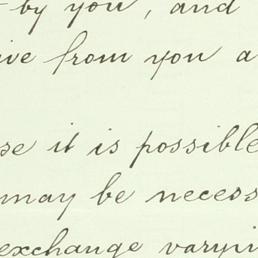 by you, and
ive from you a
se it is possible
may be necess
exchange varyi